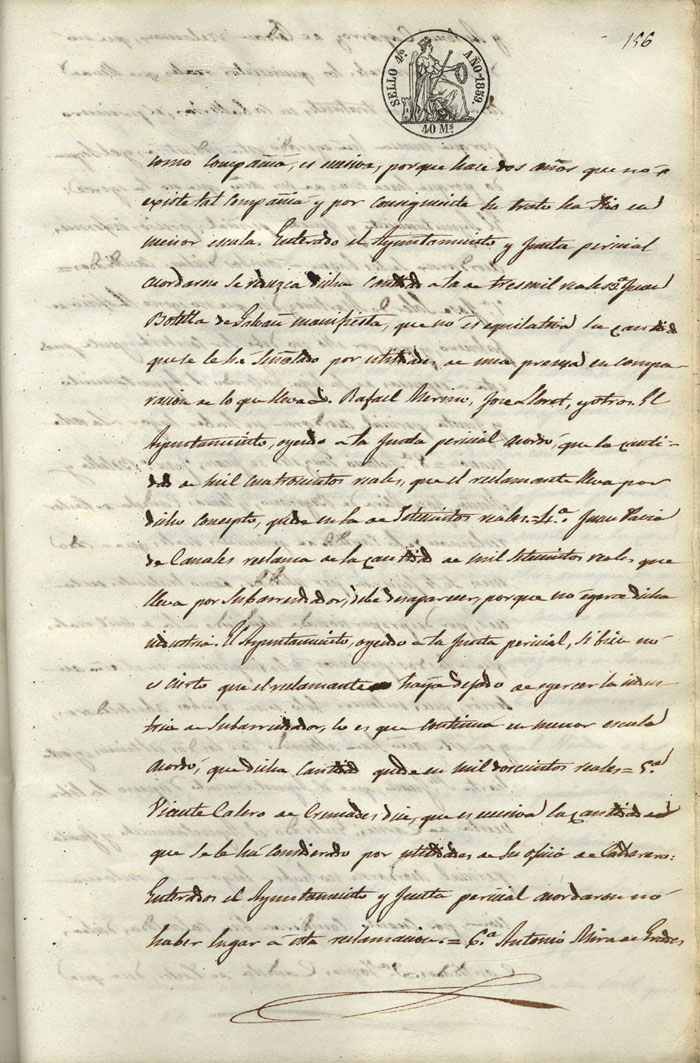 156
SELLO 4º AÑO 1859.
40 Mˢ
como Compañia, es escesiva, porque hace dos años que no
existe tal Compañia y por consiguiente su trato ha sido en
menor escala. Enterado el Ayuntamiento y Junta pericial
acordaron se reduzca dicha cantidad a la de tres mil reales = 3ª Juan
Botella de manifiesta, que no es equitativa la cantidad
que se le ha señalado por utilidades de una prensa en compa-
racion de lo que lleva D. Rafael Merino, Jose Lloret, y otros. El
Ayuntamiento, oyendo a la Junta pericial acordó, que la canti-
dad de mil cuatrocientos reales, que el reclamante lleva por
dicho concepto, quede en la de setecientos reales = 4ª Juan
de Canales reclama de la cantidad de mil setecientos reales que
lleva por subarrendador, debe desaparecer, porque no egerce dicha
industria. El Ayuntamiento, oyendo a la Junta pericial, si bien no
es cierto que el reclamante haya dejado de egercer la indus-
tria de subarrendador, lo es que continua en menor escala
acordó, que dicha cantidad quede en mil doscientos reales = 5ª
Vicente Calero de Cremades dice, que es escesiva la cantidad
que se le ha considerado por utilidades de su oficio de Calderero:
Enterados el Ayuntamiento y Junta pericial acordaron no
haber lugar a esta reclamacion = 6ª Antonio Mira de